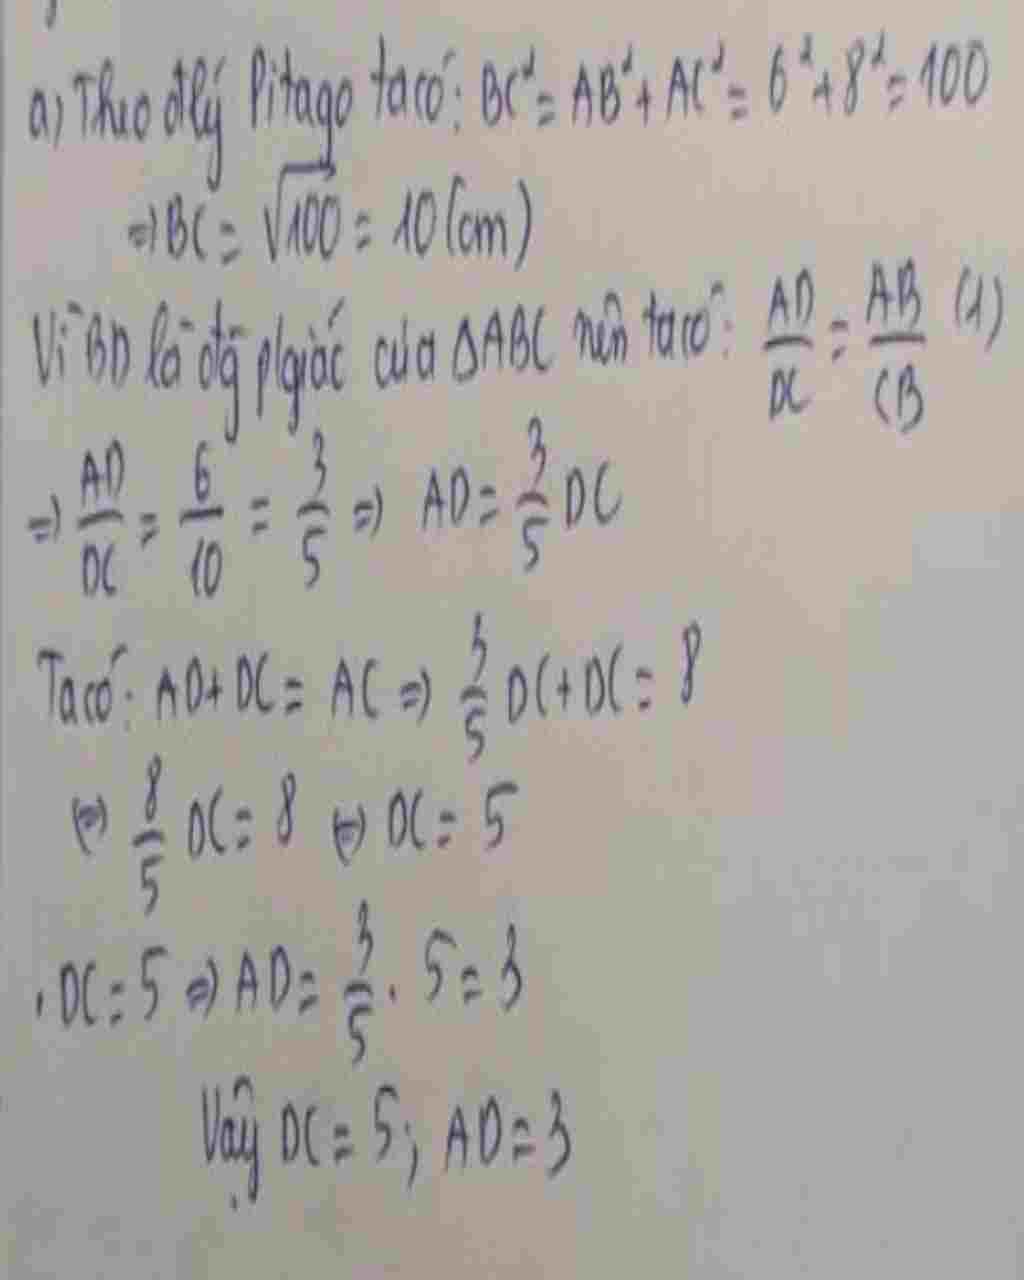 a) Theo đlý Pitago ta có: BC² = AB² + AC² = 6² + 8² = 100
⇒ BC = √100 = 10 (cm)
Vì BD là đg p/giác của ΔABC nên ta có: AD/DC = AB/CB (1)
⇒ AD/DC = 6/10 = 3/5 ⇒ AD = 3/5 DC
Ta có: AD + DC = AC ⇒ 3/5 DC + DC = 8
⇔ 8/5 DC = 8 ⇔ DC = 5
. DC = 5 ⇒ AD = 3/5 . 5 = 3
Vậy DC = 5; AD = 3